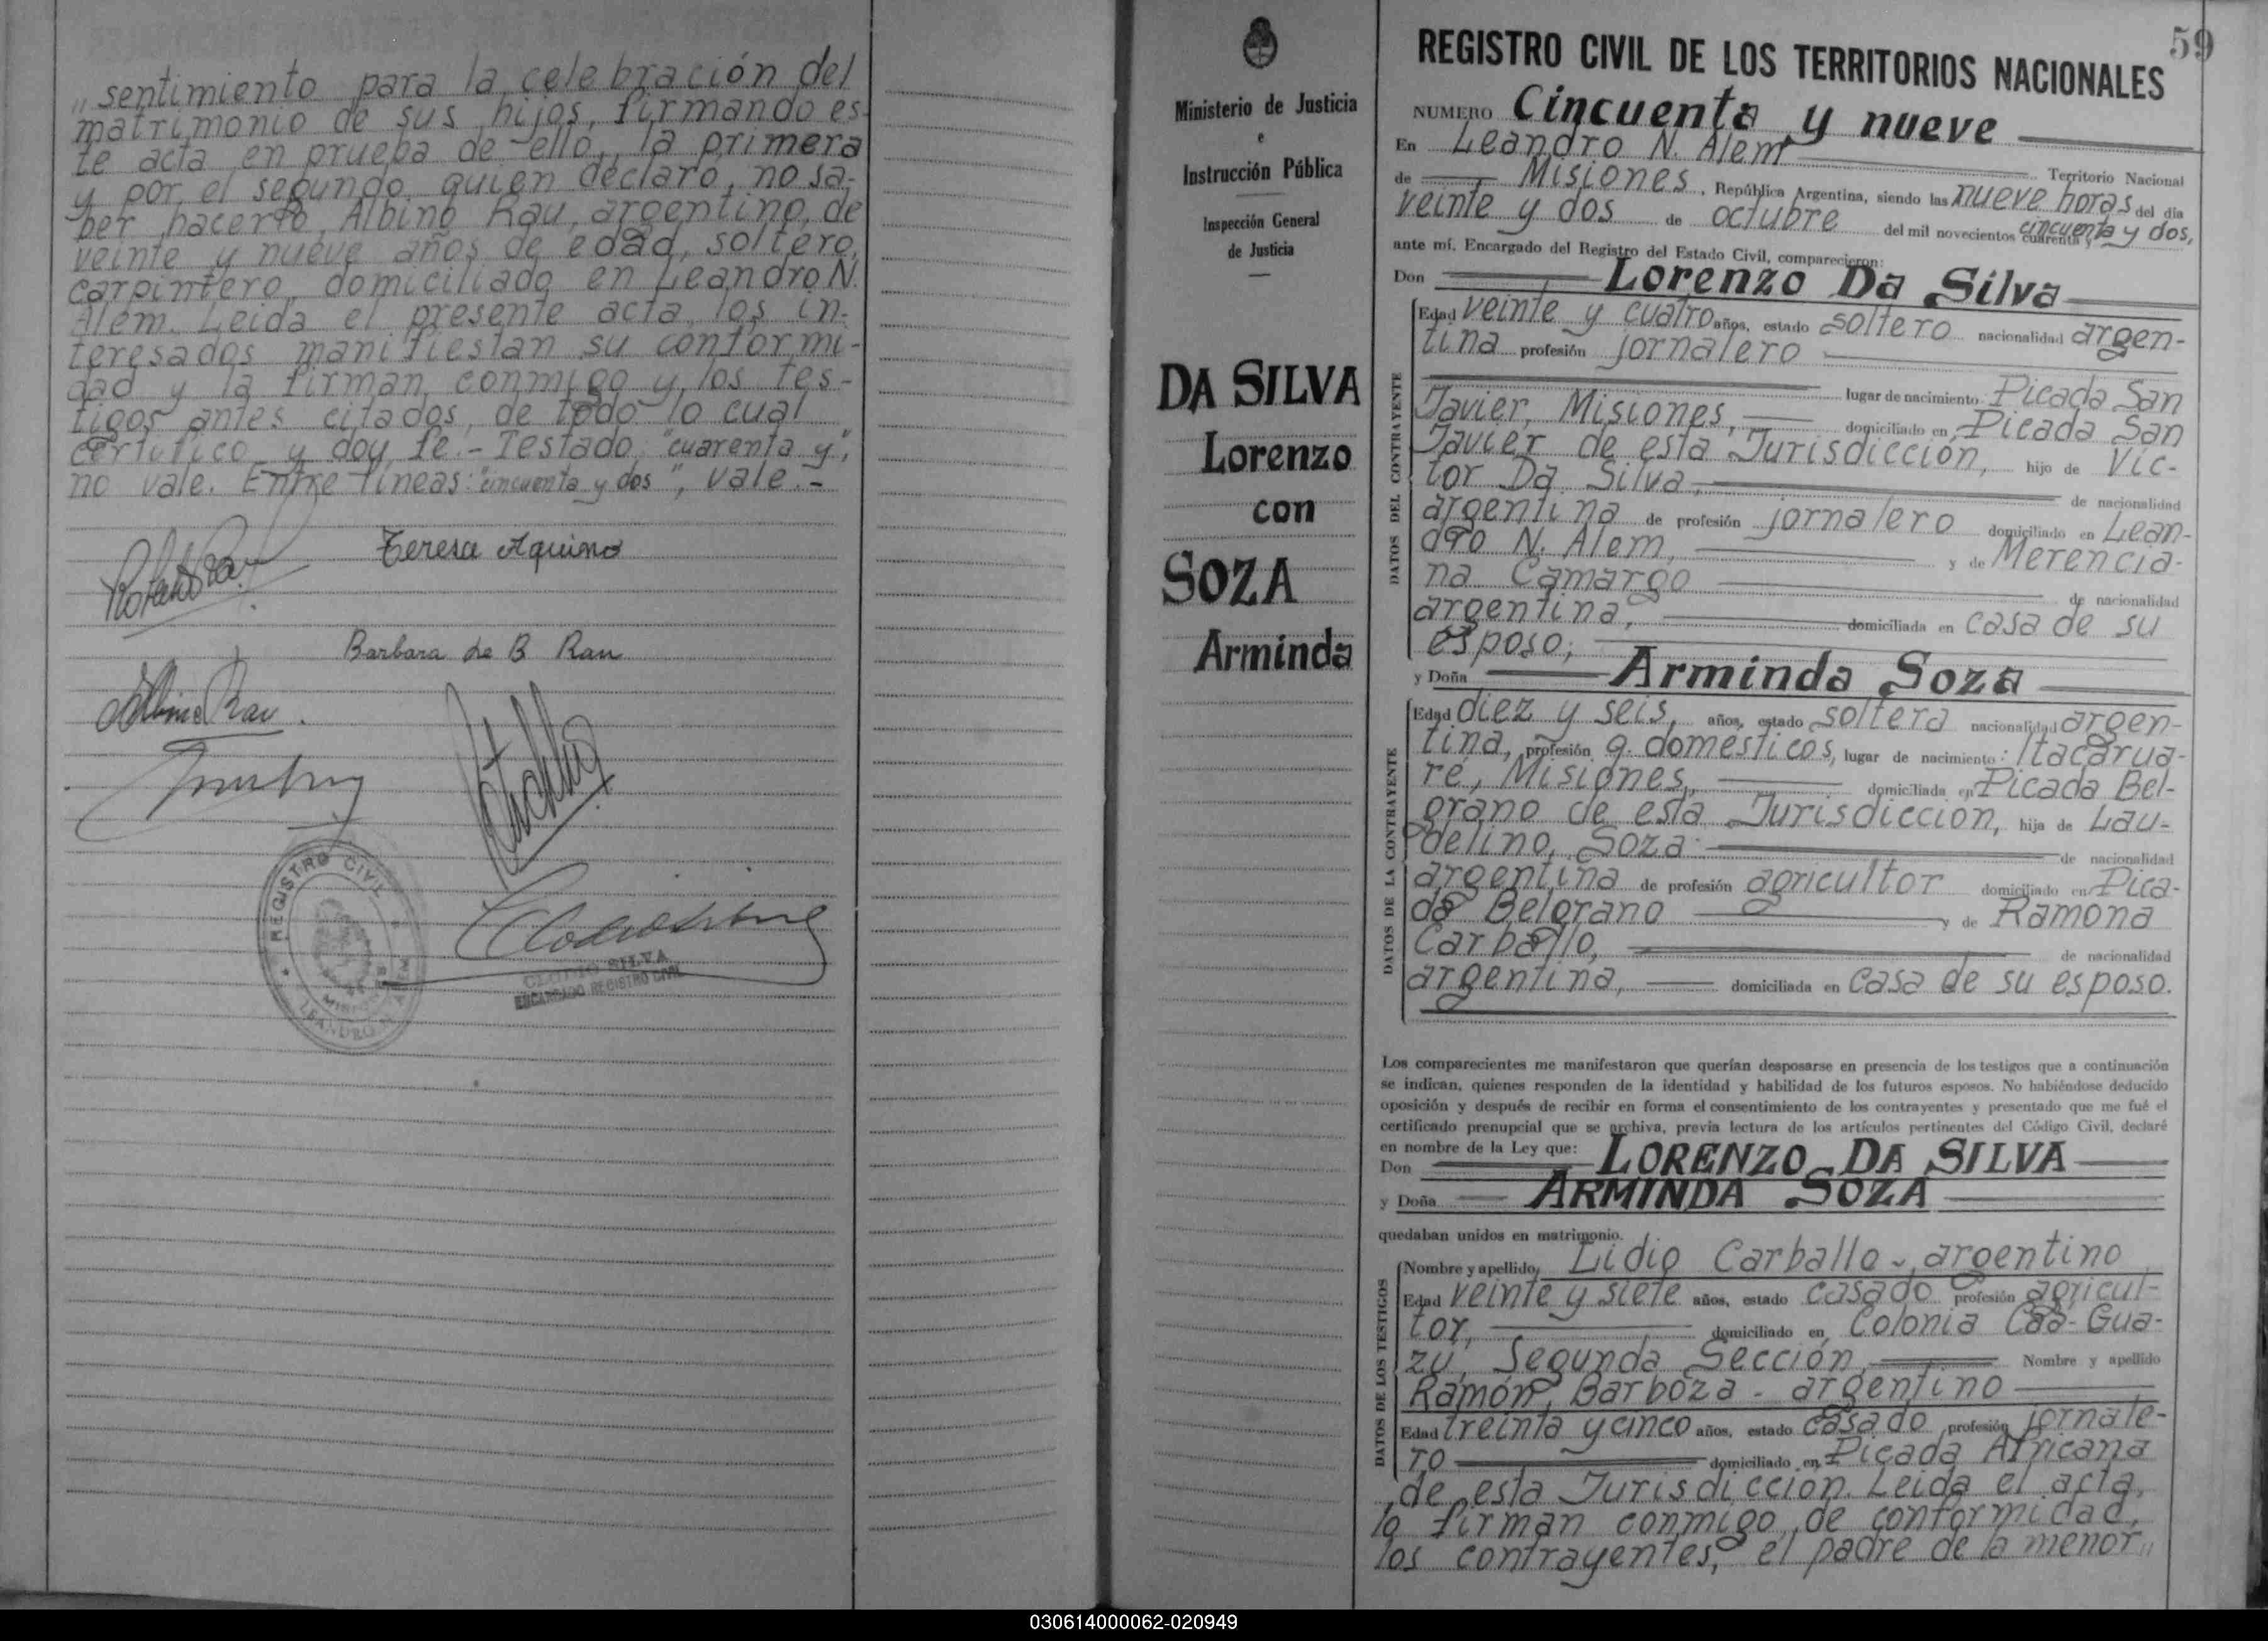 „ sentimiento para la celebración del
matrimonio de sus hijos, firmando es-
te acta en prueba de ello, la primera
y por el segundo quien declaró no sa-
ber hacerlo, Albino Rau, argentino, de
veinte y nueve años de edad, soltero,
carpintero, domiciliado en Leandro N.
Alem. Leida el presente acta, los in-
teresados manifiestan su conformi-
dad y la firman conmigo y los tes-
tigos antes citados, de todo lo cual
certifico y doy fe.- Testado "cuarenta y",
no vale. Entre líneas: "cincuenta y dos", vale.-
Teresa Aquino
Barbara de B Rau
Albino Rau.
REGISTRO CIVIL
MISIONES
LEANDRO N. ALEM
CLODIO SILVA
ENCARGADO REGISTRO CIVIL
Ministerio de Justicia
e
Instrucción Pública
Inspección General
de Justicia
DA SILVA
Lorenzo
con
SOZA
Arminda
59
REGISTRO CIVIL DE LOS TERRITORIOS NACIONALES
NUMERO Cincuenta y nueve
En Leandro N. Alem Territorio Nacional
de Misiones, República Argentina, siendo las nueve horas del día
veinte y dos de octubre del mil novecientos cuarenta y cincuenta y dos,
ante mí, Encargado del Registro del Estado Civil, comparecieron:
Don Lorenzo Da Silva
DATOS DEL CONTRAYENTE
Edad veinte y cuatro años, estado soltero nacionalidad argen-
tina profesión jornalero
lugar de nacimiento Picada San
Javier, Misiones, domiciliado en Picada San
Javier de esta Jurisdicción, hijo de Víc-
tor Da Silva, de nacionalidad
argentina de profesión jornalero domiciliado en Lean-
dro N. Alem, y de Merencia-
na Camargo de nacionalidad
argentina, domiciliada en casa de su
esposo;
y Doña Arminda Soza
DATOS DE LA CONTRAYENTE
Edad diez y seis, años, estado soltera nacionalidad argen-
tina, profesión q. domésticos, lugar de nacimiento: Itacarua-
ré, Misiones, domiciliada en Picada Bel-
grano de esta Jurisdicción, hija de Lau-
delino Soza de nacionalidad
argentina de profesión agricultor domiciliado en Pica-
da Belgrano y de Ramona
Carballo, de nacionalidad
argentina, domiciliada en casa de su esposo.
Los comparecientes me manifestaron que querían desposarse en presencia de los testigos que a continuación
se indican, quienes responden de la identidad y habilidad de los futuros esposos. No habiéndose deducido
oposición y después de recibir en forma el consentimiento de los contrayentes y presentado que me fué el
certificado prenupcial que se archiva, previa lectura de los artículos pertinentes del Código Civil, declaré
en nombre de la Ley que:
Don LORENZO DA SILVA
y Doña ARMINDA SOZA
quedaban unidos en matrimonio.
DATOS DE LOS TESTIGOS
Nombre y apellido Lidio Carballo - argentino
Edad veinte y siete años, estado casado profesión agricul-
tor, domiciliado en Colonia Caá-Gua-
zú, Segunda Sección, Nombre y apellido
Ramón Barboza - argentino
Edad treinta y cinco años, estado casado profesión jornale-
ro domiciliado en Picada Africana
de esta Jurisdicción. Leida el acta,
la firman conmigo de conformidad,
los contrayentes, el padre de la menor „
030614000062-020949